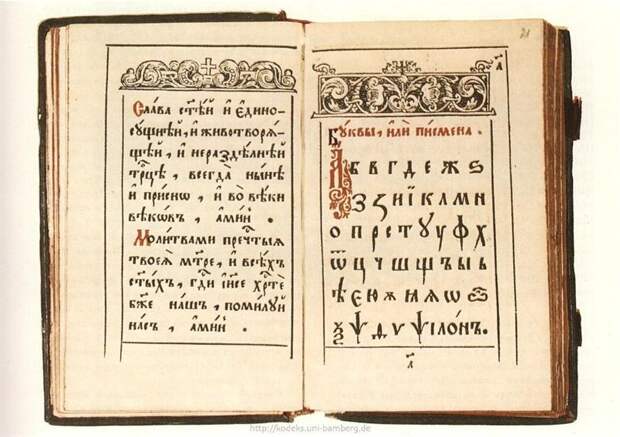 Сла́ва ст҃ѣ́й и҆ є҆дино-
сꙋ́щнѣй, и҆ животворѧ́-
щей, и҆ нераздѣ́лнѣй
трⷪ҇цѣ, всегда̀ ны́нѣ
и҆ при́снѡ, и҆ во вѣ́ки
вѣкѡ́въ, а҆ми́нь.
Моли́твами пречⷭ҇тыѧ
твоеѧ̀ мт҃ре, и҆ всѣ́хъ
ст҃ы́хъ, гдⷭ҇и і҆и҃се хрⷭ҇тѐ
бж҃е на́шъ, поми́лꙋй
на́съ, а҆ми́нь.
21
Бꙋ́квы, и҆лѝ писмена̀.
А б в г д е ж ѕ
з ꙁ и ї к л м н
о п р с т ꙋ у ф х
ѿ ц ч ш щ ъ ы ь
ѣ є ю ѧ ѡ
ѯ ѱ ѵ ѱїло́нъ.
http://kodeks.uni-bamberg.de